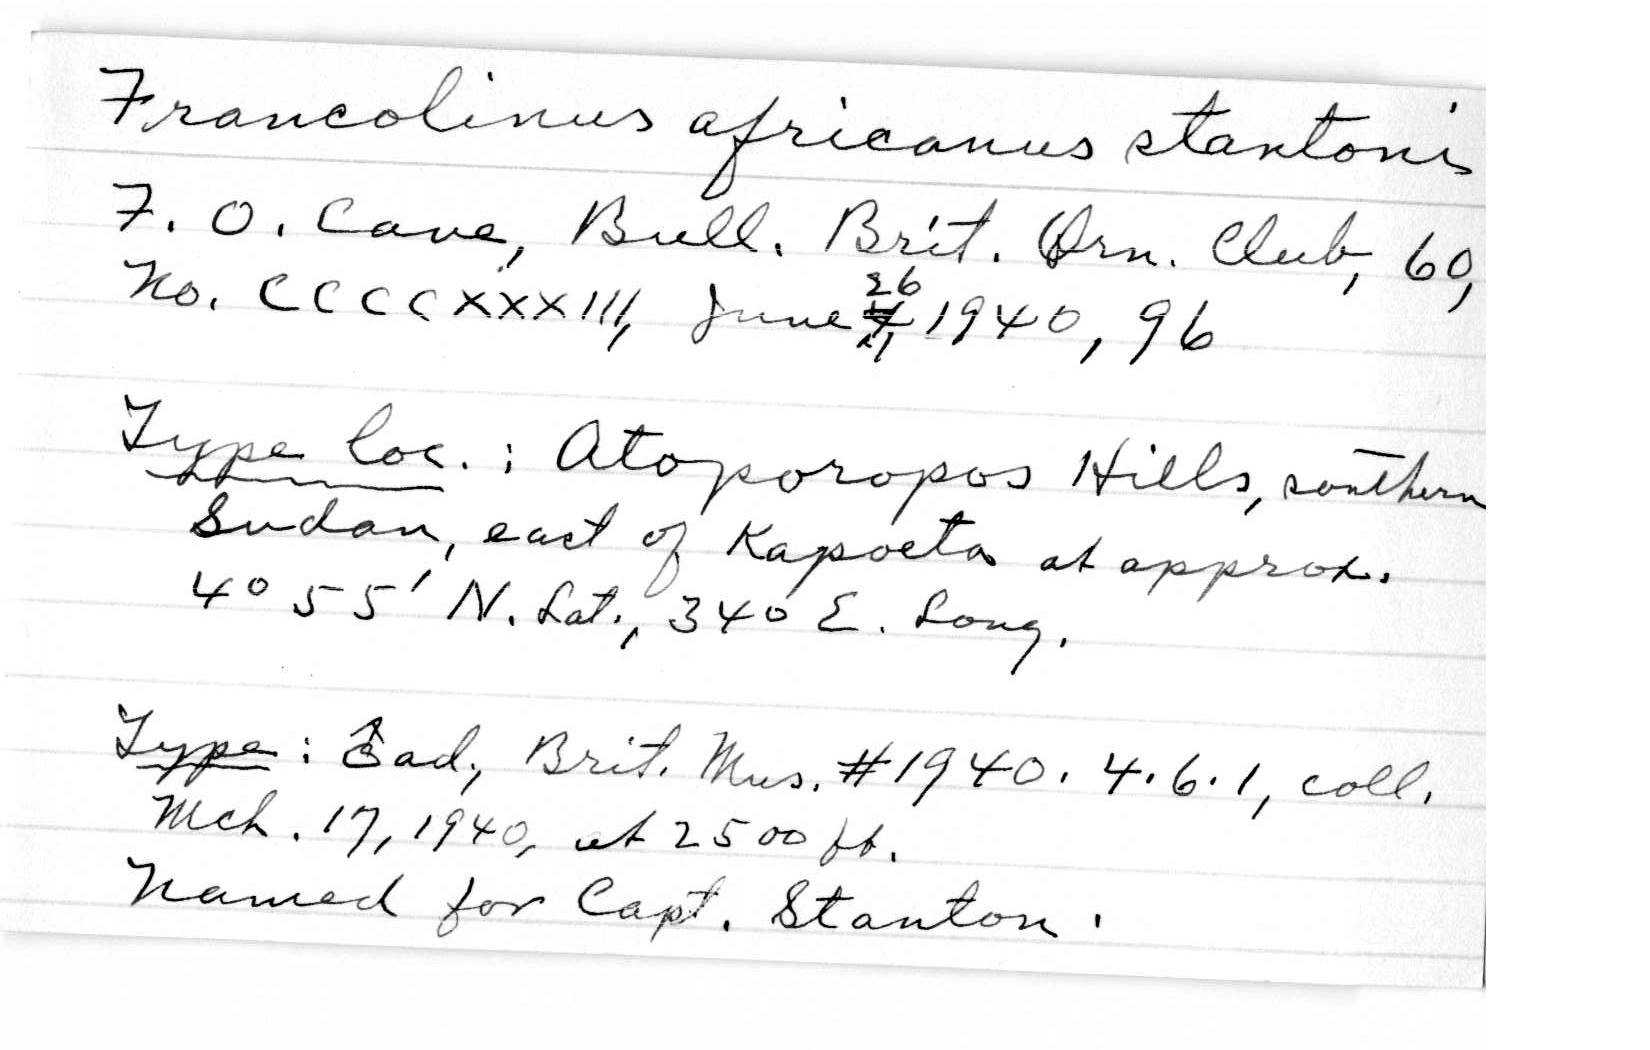 Francolinus africanus stantoni
F. O. Cave, Bull. Brit. Orn. Club, 60,
No. CCCCXXXIII, June 26, 1940, 96
Type loc.: Atoporopos Hills, southern
Sudan, east of Kapoeta at approx.
4° 55' N. Lat., 34° E. Long.
Type: ad., Brit. Mus. #1940.4.6.1, coll.
Mch. 17, 1940, at 2500 ft.
Named for Capt. Stanton.